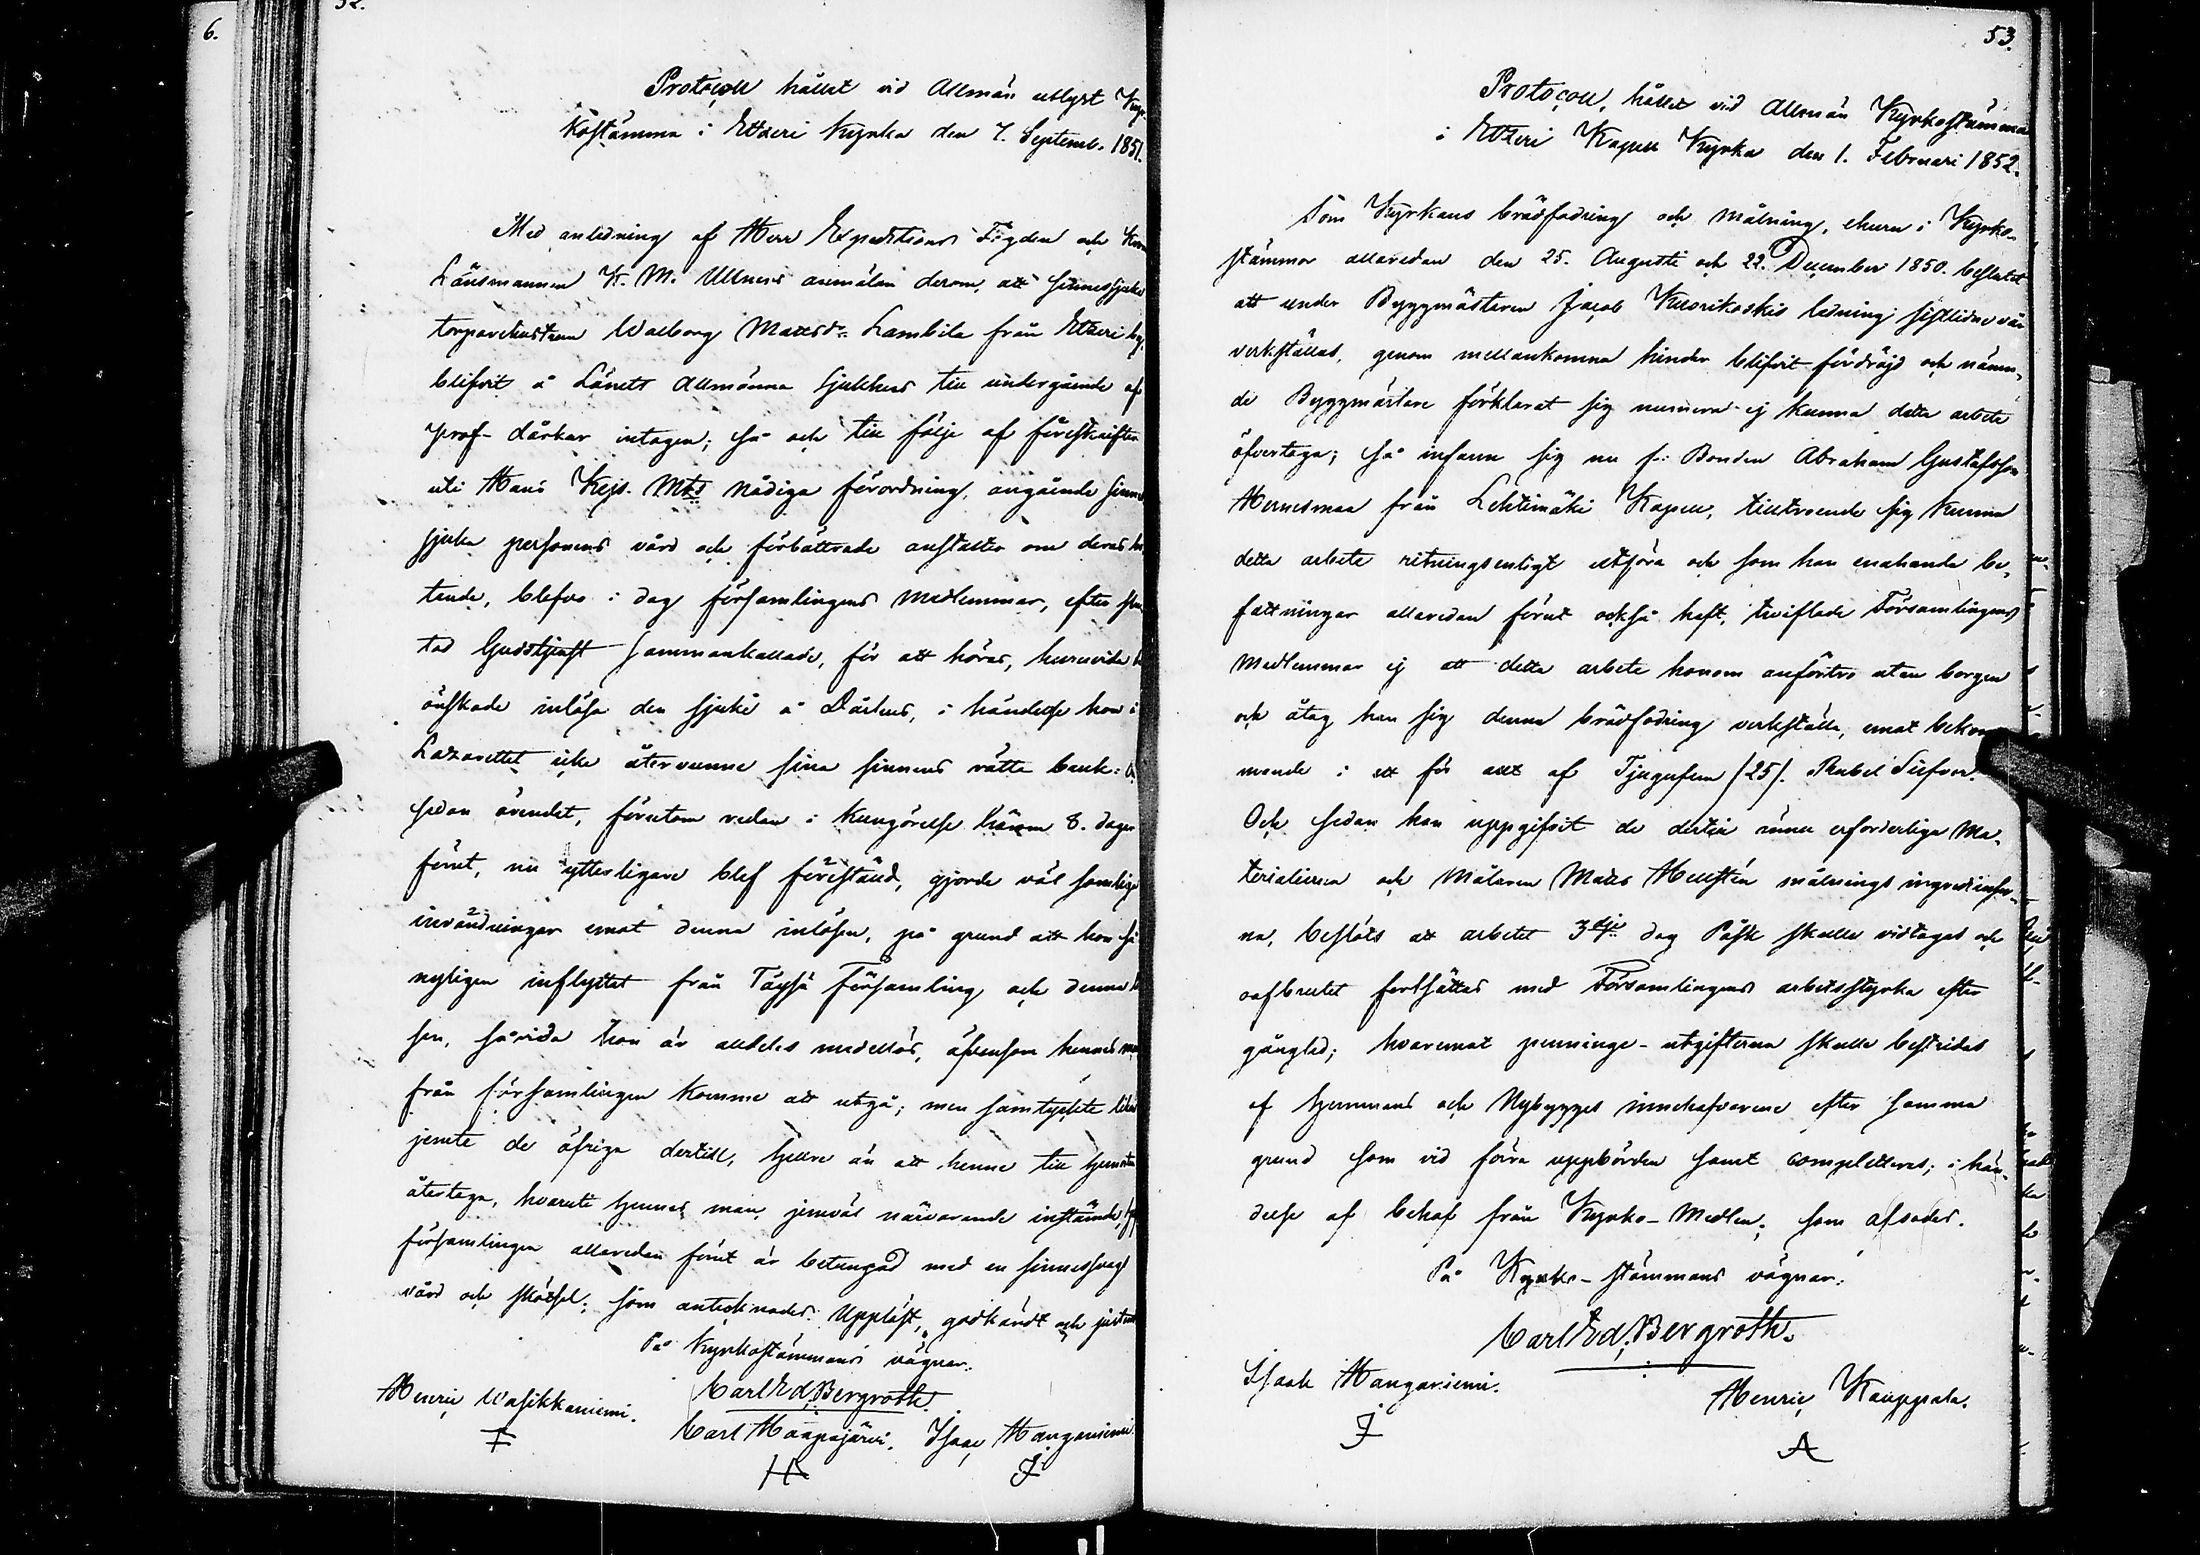 52.
Protocoll hållet vid Allmän utlyst Kyr-
kostämma i Etzeri Kyrka den 7. Septemb. 1851.
Med anledning af Herr Expeditions Fogden och
Länsmannen K. M. Ullners anmälan derom, att sinnessjuka
torparehustrun Walborg Mattsdr Lambila från Etzeri by,
blifvit å Länets Allmänna Sjukhus till undergående af
prof-dårkur intagen; så och till följe af föreskriften
uti Hans Kejs. Mts Nådiga förordning, angående sinnes
sjuka personers vård och förbättrade anstalter om deras
tende, blefvo i dag församlingens medlemmar, efter slu-
tad Gudstjenst sammankallade, för att höras, huruvida
önskade inlösa den sjuke å Dårhus, i händelse hon å
Lazarettet icke återvunne sina sinnens rätta bruk:
sedan ärendet, förutom redan i kungörelse härom 8. dagar
förut, nu ytterligare blef föreställd, gjorde väl somliga
invändningar emot denna inlösen, på grund att hon så
nyligen inflyttet från Töysä Församling och denna
sen, såvida hon är alldeles medellös, äfvensom hennes man
från församlingen komme att utgå; men samtyckte
jemte de öfriga dertill, hellre än att henne till hemorten
återtaga, hvaruti hennes man, jemväl närvarande instämde,
församlingen allaredan förut är betungad med en sinnessvag
vård och skötsel; som antecknades. Uppläst, godkändt och justerat
På Kyrkostämmans vägnar:
Carl Ed. Bergroth.
Henric Wasikkaniemi. Carl Haapajärvi. Isaac Hanganiemi.
6.
53.
Protocoll, hållet vid Allmän Kyrkostämma
i Etzeri Kapell Kyrka den 1. Februari 1852.
Som Kyrkans brädfodring och målning, ehuru i Kyrko-
stämmor allaredan den 25. Augusti och 22. December 1850. beslutet
att under Byggmästaren Jacob Kuorikoskis ledning sistlidne vår
verkställas, genom mellankomna hinder blifvit fördröjd och nämn-
de Byggmästare förklarat sig numera ej kunna detta arbete
öfvertaga; så infann sig nu f: Bonden Abraham Gustafsson
Hernesmaa från Lehtimäki Kapell, tilltroende sig kunna
detta arbete ritningsenligt utföra och som han enahanda be-
fattningar allaredan förut också haft, tviflade Församlingens
Medlemmar ej att detta arbete honom anförtro utan borgen
och åtog han sig denna brädfodring verkställa, emot bekom-
mande i ett för allt af Tjugufem (25). Rubel Silfver.
Och sedan han uppgifvit de dertill ännu erforderliga Ma-
terialierna och Målaren Matts Hellstén målnings ingredienser-
na, beslöts att arbetet 3dje dag Påsk skulle vidtagas och
oafbrutet fortsättas med Församlingens arbetsstyrka efter
gånglad; hvaremot penninge-utgifterna skulle bestridas
af hemmans och Nybygges innehafvarene efter samma
grund som vid förra uppbörden samt completteras; i hän-
delse af behof från Kyrko-Medlen; som afsades.
På Kyrko-stämmans vägnar:
Carl Ed. Bergroth.
Isaak Hanganiemi. Henric Kauppala.